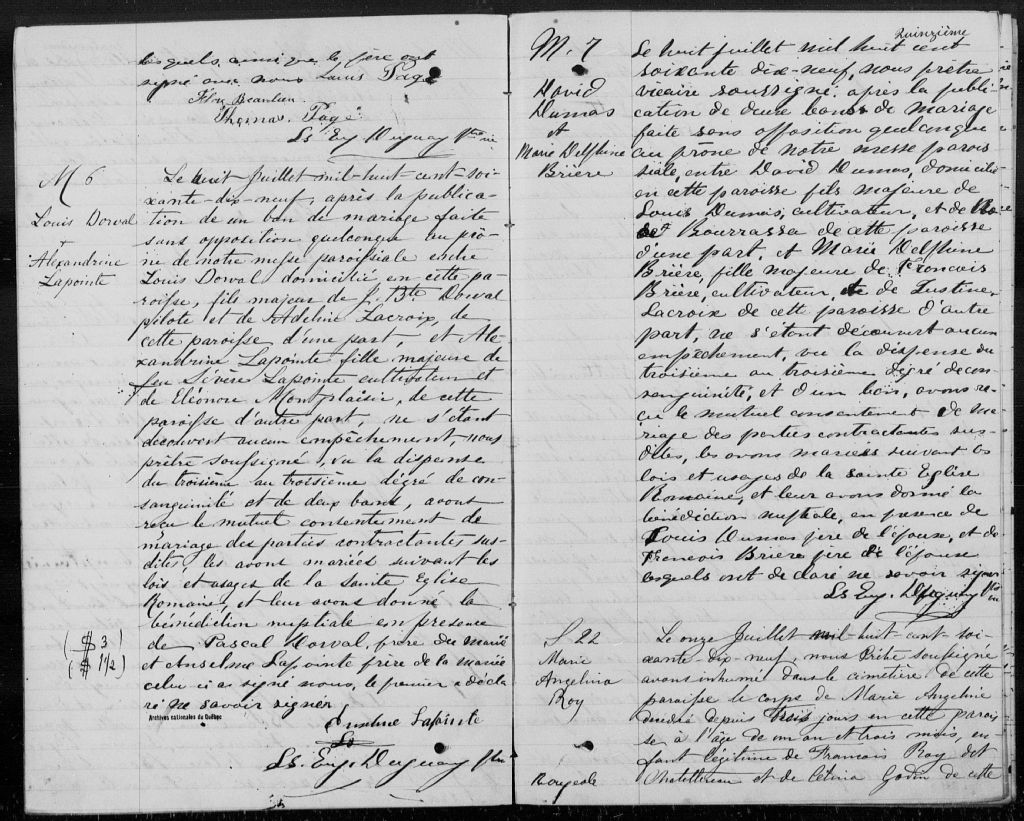 lesquels, ainsi que le père ont
signé avec nous Louis Pagé
Thomas Pagé
Ls Eug. Duguay Ptre
M 6
Louis Dorval
+
Alexandrine
Lapointe
Le huit Juillet mil-huit-cent-soi-
xante-dix-neuf, après la publica-
tion de un ban de mariage faite
sans opposition quelconque au prô-
ne de notre messe paroissiale entre
Louis Dorval domicilié en cette pa-
roisse, fils majeur de J. Bte Dorval
pilote et de Adeline Lacroix, de
cette paroisse d'une part, et Ale-
xandrine Lapointe fille majeure de
feu Sévère Lapointe cultivateur et
de Eléonore Montplaisir, de cette
paroisse d'autre part, ne s'étant
découvert aucun empêchement, nous
prêtre soussigné, vu la dispense
du troisième au troisième dégré de con-
sanguinité et de deux bans, avons
reçu le mutuel contentement de
mariage des parties contractantes sus-
dites, les avons mariés suivant les
lois et usages de la Sainte Eglise
Romaine, et leur avons donné la
bénédiction nuptiale en présence
de Pascal Dorval, frère du marié
et Anselme Lapointe frère de la mariée
celui-ci a signé nous, le premier a décla
ré ne savoir signer
($ 3)
($ 1/2)
Archives nationales du Québec
Anselme Lapointe
Ls. Eug. Duguay Ptre
Quinzième
M. 7
David
Dumas
et
Marie Delphine
Brière
Le huit juillet mil huit cent
soixante dix-neuf, nous prêtre
vicaire soussigné, après la publi-
cation de deux bans de mariage
faite sans opposition quelconque
au prône de notre messe parois
siale, entre David Dumas, domicilié
en cette paroisse fils majeure de
Louis Dumas, cultivateur, et de
Bourrassa de cette paroisse
d'une part, et Marie Delphine
Brière, fille majeure de Francois
Brière, cultivateur, et de Justine
Lacroix de cette paroisse d'autre
part, ne s'étant découvert aucun
empêchement, vu la dispense du
troisième au troisième dégré de con-
sanguinité, et d'un bans, avons re-
çu le mutuel consentement de ma-
riage des parties contractantes sus-
dites, les avons mariés suivant les
lois et usages de la sainte Eglise
Romaine, et leur avons donné la
bénédiction nuptiale, en presence de
Louis Dumas père de l'épouse, et de
Francois Brière père de l'épouse
lesquels ont declaré ne savoir signer
Ls Eug. Duguay Ptre
S. 22
Marie
Angelina
Roy
Rougeole
Le onze Juillet mil-huit-cent-soi-
xante-dix-neuf, nous Prêtre soussigné
avons inhumé dans le cimetière de cette
paroisse le corps de Marie Angeline
décédée depuis trois jours en cette parois
se, à l'âge de un an et trois mois, en-
fant légitime de Francois Roy dit
Chatellereau et de Célina Godin de cette